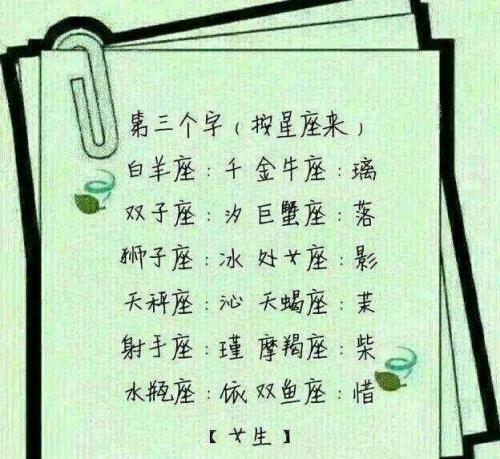 第三个字（按星座来）
白羊座：千 金牛座：璃
双子座：汐 巨蟹座：落
狮子座：冰 处女座：影
天秤座：沁 天蝎座：茉
射手座：瑾 摩羯座：柴
水瓶座：依 双鱼座：惜
【女生】